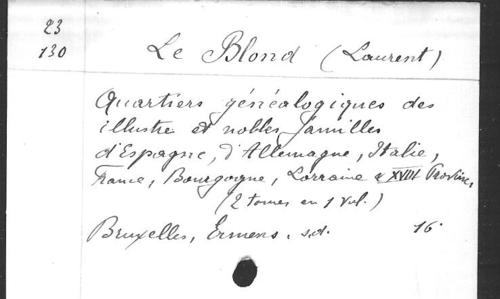 23
130
Le Blond (Laurent)
Quartiers généalogiques des
illustre et nobles familles
d'Espagne, d'Allemagne, Italie,
France, Bourgogne, Lorraine & XVIII Provinc.
(2 tomes en 1 vol.)
Bruxelles, Ermens. s.d. 16°